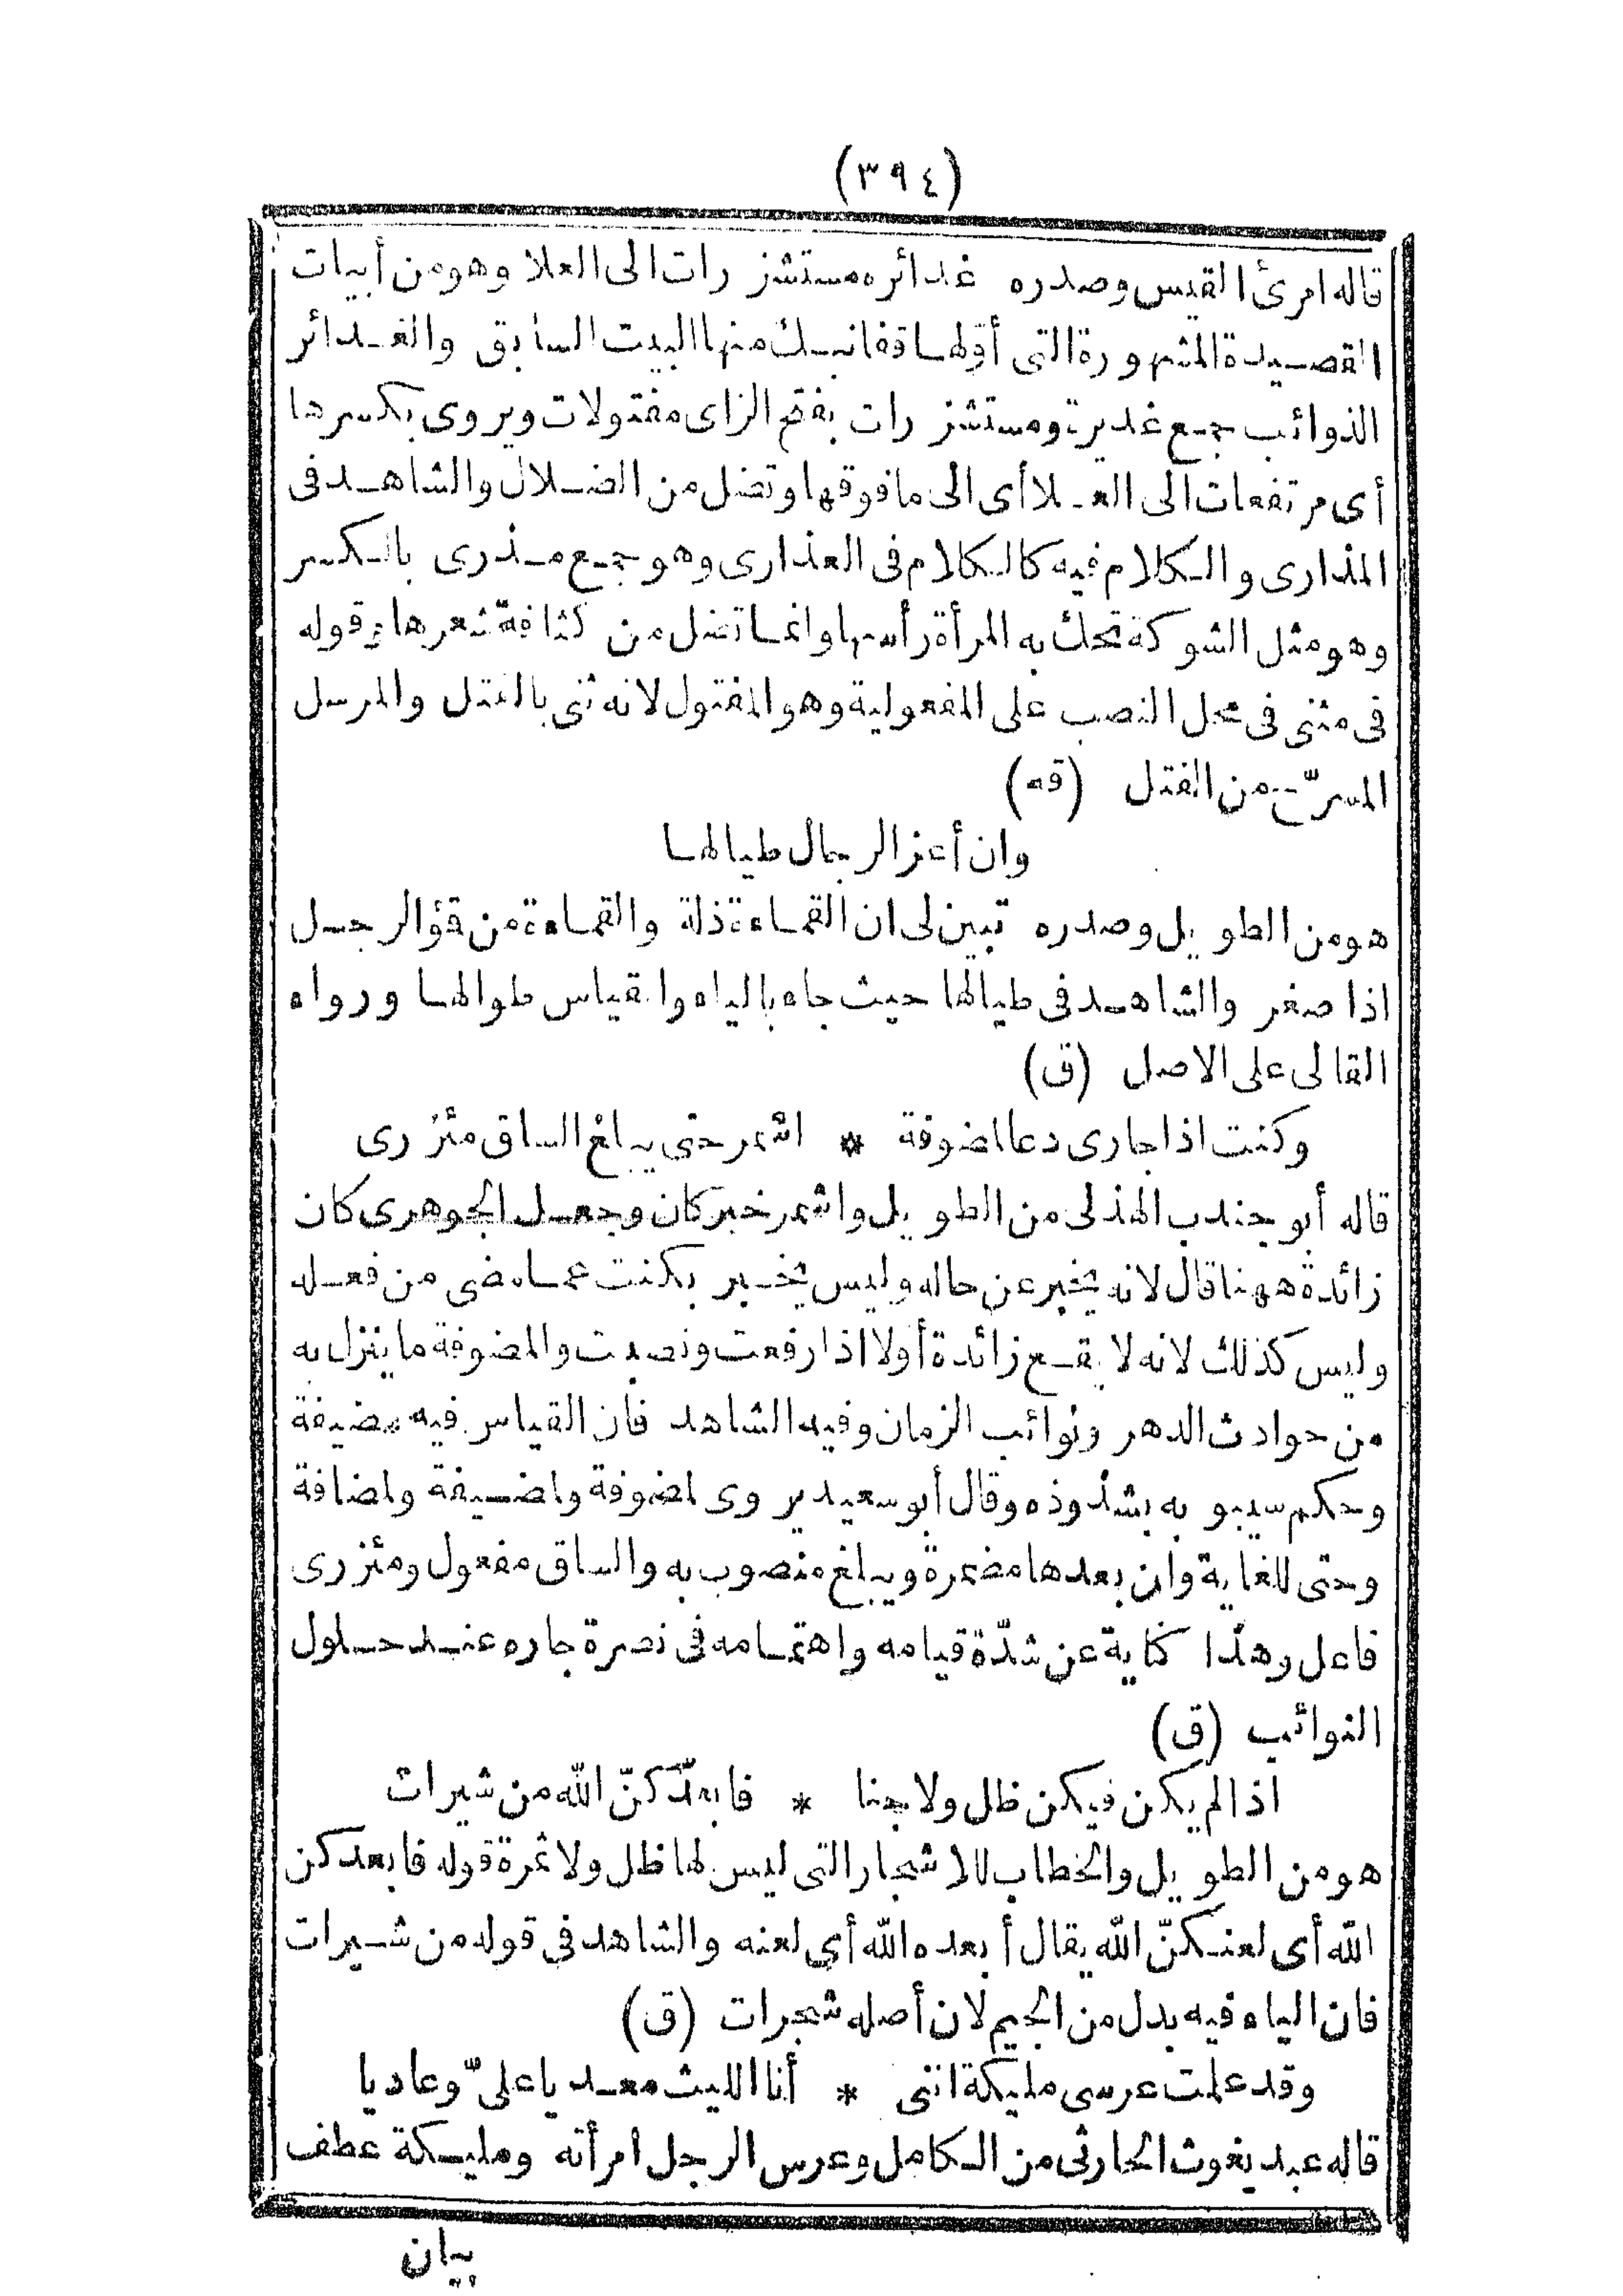 (٣٩٤)
قاله امرئ القيس وصدره غدائره مستشزرات الى العلا وهو من أبيات
القصيدة المشهورة التى أولها قفا نبك منها البيت السابق والغدائر
الذوائب جمع غديرة ومستشزرات بفتح الزاى مفتولات ويروى بكسرها
أى مرتفعات الى العلا أى الى ما فوقها وتضل من الضلال والشاهد فى
المذارى والكلام فيه كالكلام فى العذارى وهو جمع مذرى بالكسر
وهو مثل الشوكة تحك به المرأة رأسها وانما تضل من كثافة شعرها وقوله
فى مثنى فى محل النصب على المفعولية وهو المفتول لانه ثنى بالفتل والمرسل
المسرّح من الفتل (قه)
وان أعز الرجال طيالها
هو من الطويل وصدره تبين لى ان القماءة ذلة والقماءة من قمؤ الرجل
اذا صغر والشاهد فى طيالها حيث جاء بالياء والقياس طوالها ورواه
القالى على الاصل (ق)
وكنت اذا جارى دعا لمضوفة * اشمر حتى يبلغ الساق مئزرى
قاله أبو جندب الهذلى من الطويل واشمر خبر كان وجعل الجوهرى كان
زائدة ههنا قال لانه يخبر عن حاله وليس يخبر بكنت عما مضى من فعله
وليس كذلك لانه لا يقع زائدة أولا اذا رفعت ونصبت والمضوفة ما ينزل به
من حوادث الدهر ونوائب الزمان وفيه الشاهد فان القياس فيه مضيفة
وحكم سيبويه بشذوذه وقال أبو سعيد يروى لمضوفة ولمضيفة ولمضافة
وحتى للغاية وان بعدها مضمرة ويبلغ منصوب به والساق مفعول ومئزرى
فاعل وهذا كناية عن شدّة قيامه واهتمامه فى نصرة جاره عند حلول
النوائب (ق)
اذا لم يكن فيكن ظل ولا جنا * فابعدكنّ الله من شيرات
هو من الطويل والخطاب للاشجار التى ليس لها ظل ولا ثمرة قوله فابعدكن
الله أى لعنكنّ الله يقال أبعده الله أى لعنه والشاهد فى قوله من شيرات
فان الياء فيه بدل من الجيم لان أصله شجرات (ق)
وقد علمت عرسى مليكة اننى * أنا الليث معديا علىّ وعاديا
قاله عبد يغوث الحارثى من الكامل وعرس الرجل امرأته ومليكة عطف
بيان